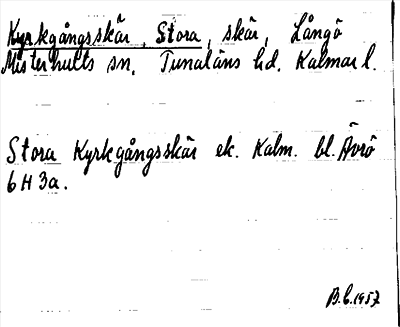 Kyrkgångsskär, Stora, skär, Långö
Misterhults sn, Tunaläns hd. Kalmar l.
Stora Kyrkgångsskär ek. Kalm. bl. Ävrö
6H3a.
B.C. 1957